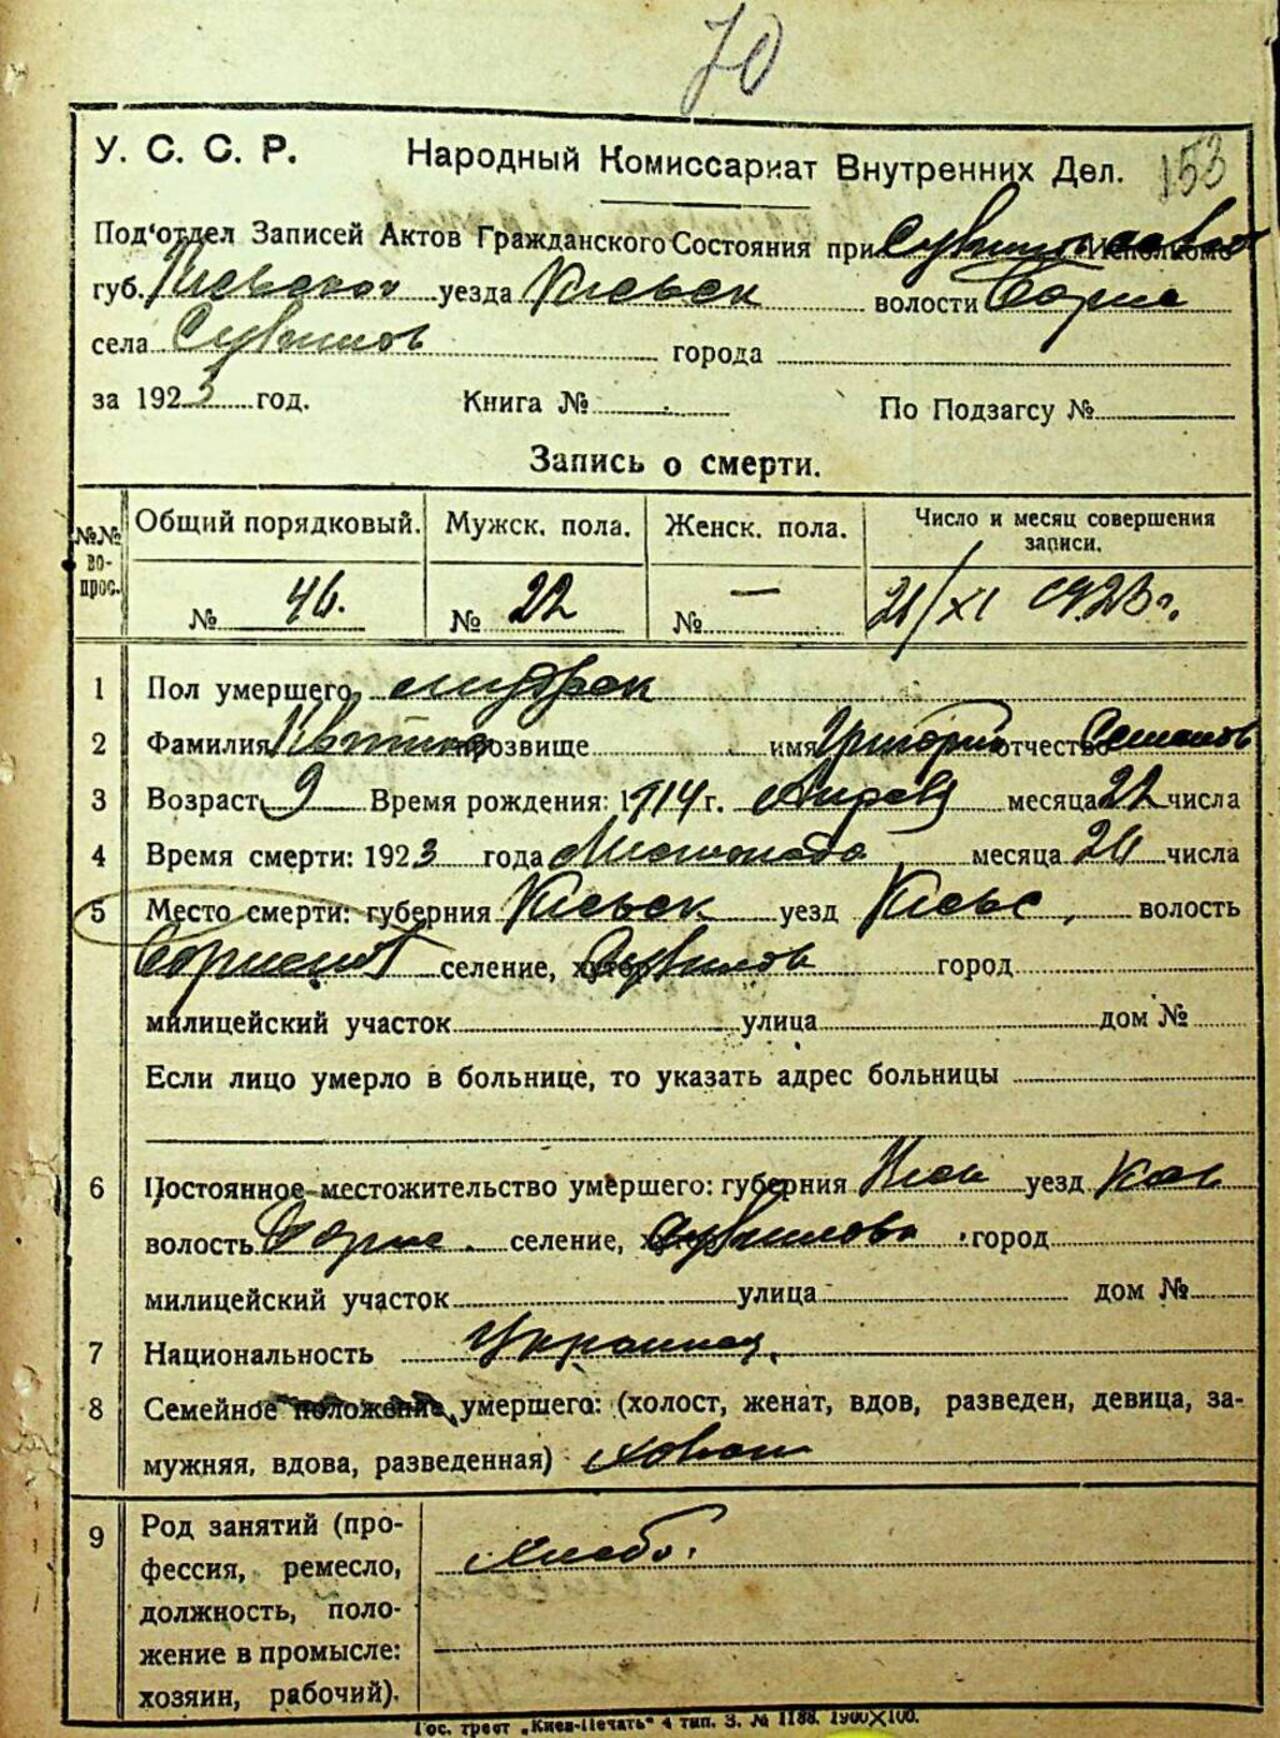 70
У. С. С. Р. Народный Комиссариат Внутренних Дел. 153
Под'отдел Записей Актов Гражданского Состояния при Исполкоме
губ. Киевской уезда Киевск волости Борис
села города
за 1923 год. Книга № По Подзагсу №
Запись о смерти.
№№ вопрос. Общий порядковый. Мужск. пола. Женск. пола. Число и месяц совершения записи.
№ 46. № 22 № — 21/XI 1923 г.
1 Пол умершего
2 Фамилия прозвище имя Григорий отчество Семенов
3 Возраст 9 Время рождения: 1914 г. месяца 22 числа
4 Время смерти: 1923 года Листопада месяца 21 числа
5 Место смерти: губерния Киевск уезд Киевс, волость
селение, хутор город
милицейский участок улица дом №
Если лицо умерло в больнице, то указать адрес больницы
6 Постоянное местожительство умершего: губерния Киев уезд Киев
волость Борис. селение, хутор город
милицейский участок улица дом №
7 Национальность Украинец
8 Семейное положение умершего: (холост, женат, вдов, разведен, девица, за-
мужняя, вдова, разведенная)
9 Род занятий (про-
фессия, ремесло, хлебо.
должность, поло-
жение в промысле:
хозяин, рабочий).
Гос. трест „Киев-Печать" 4 тип. З. № 1188. 1900X100.